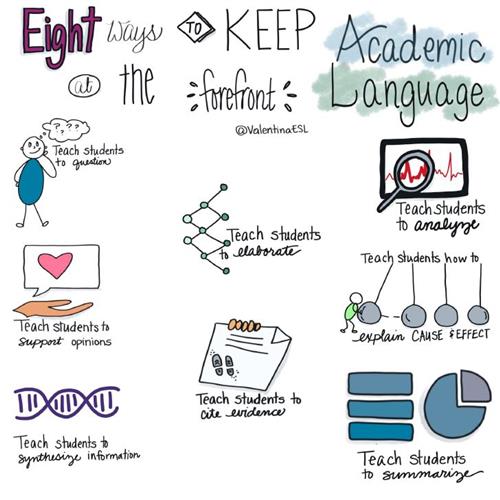 Eight Ways TO KEEP
at the forefront
Academic
Language
@ValentinaESL
????
Teach students
to question
Teach students
to elaborate
Teach students
to analyze
Teach students to
support opinions
Teach students how to
explain CAUSE & EFFECT
Teach students to
cite evidence
Teach students to
synthesize information
Teach students
to summarize